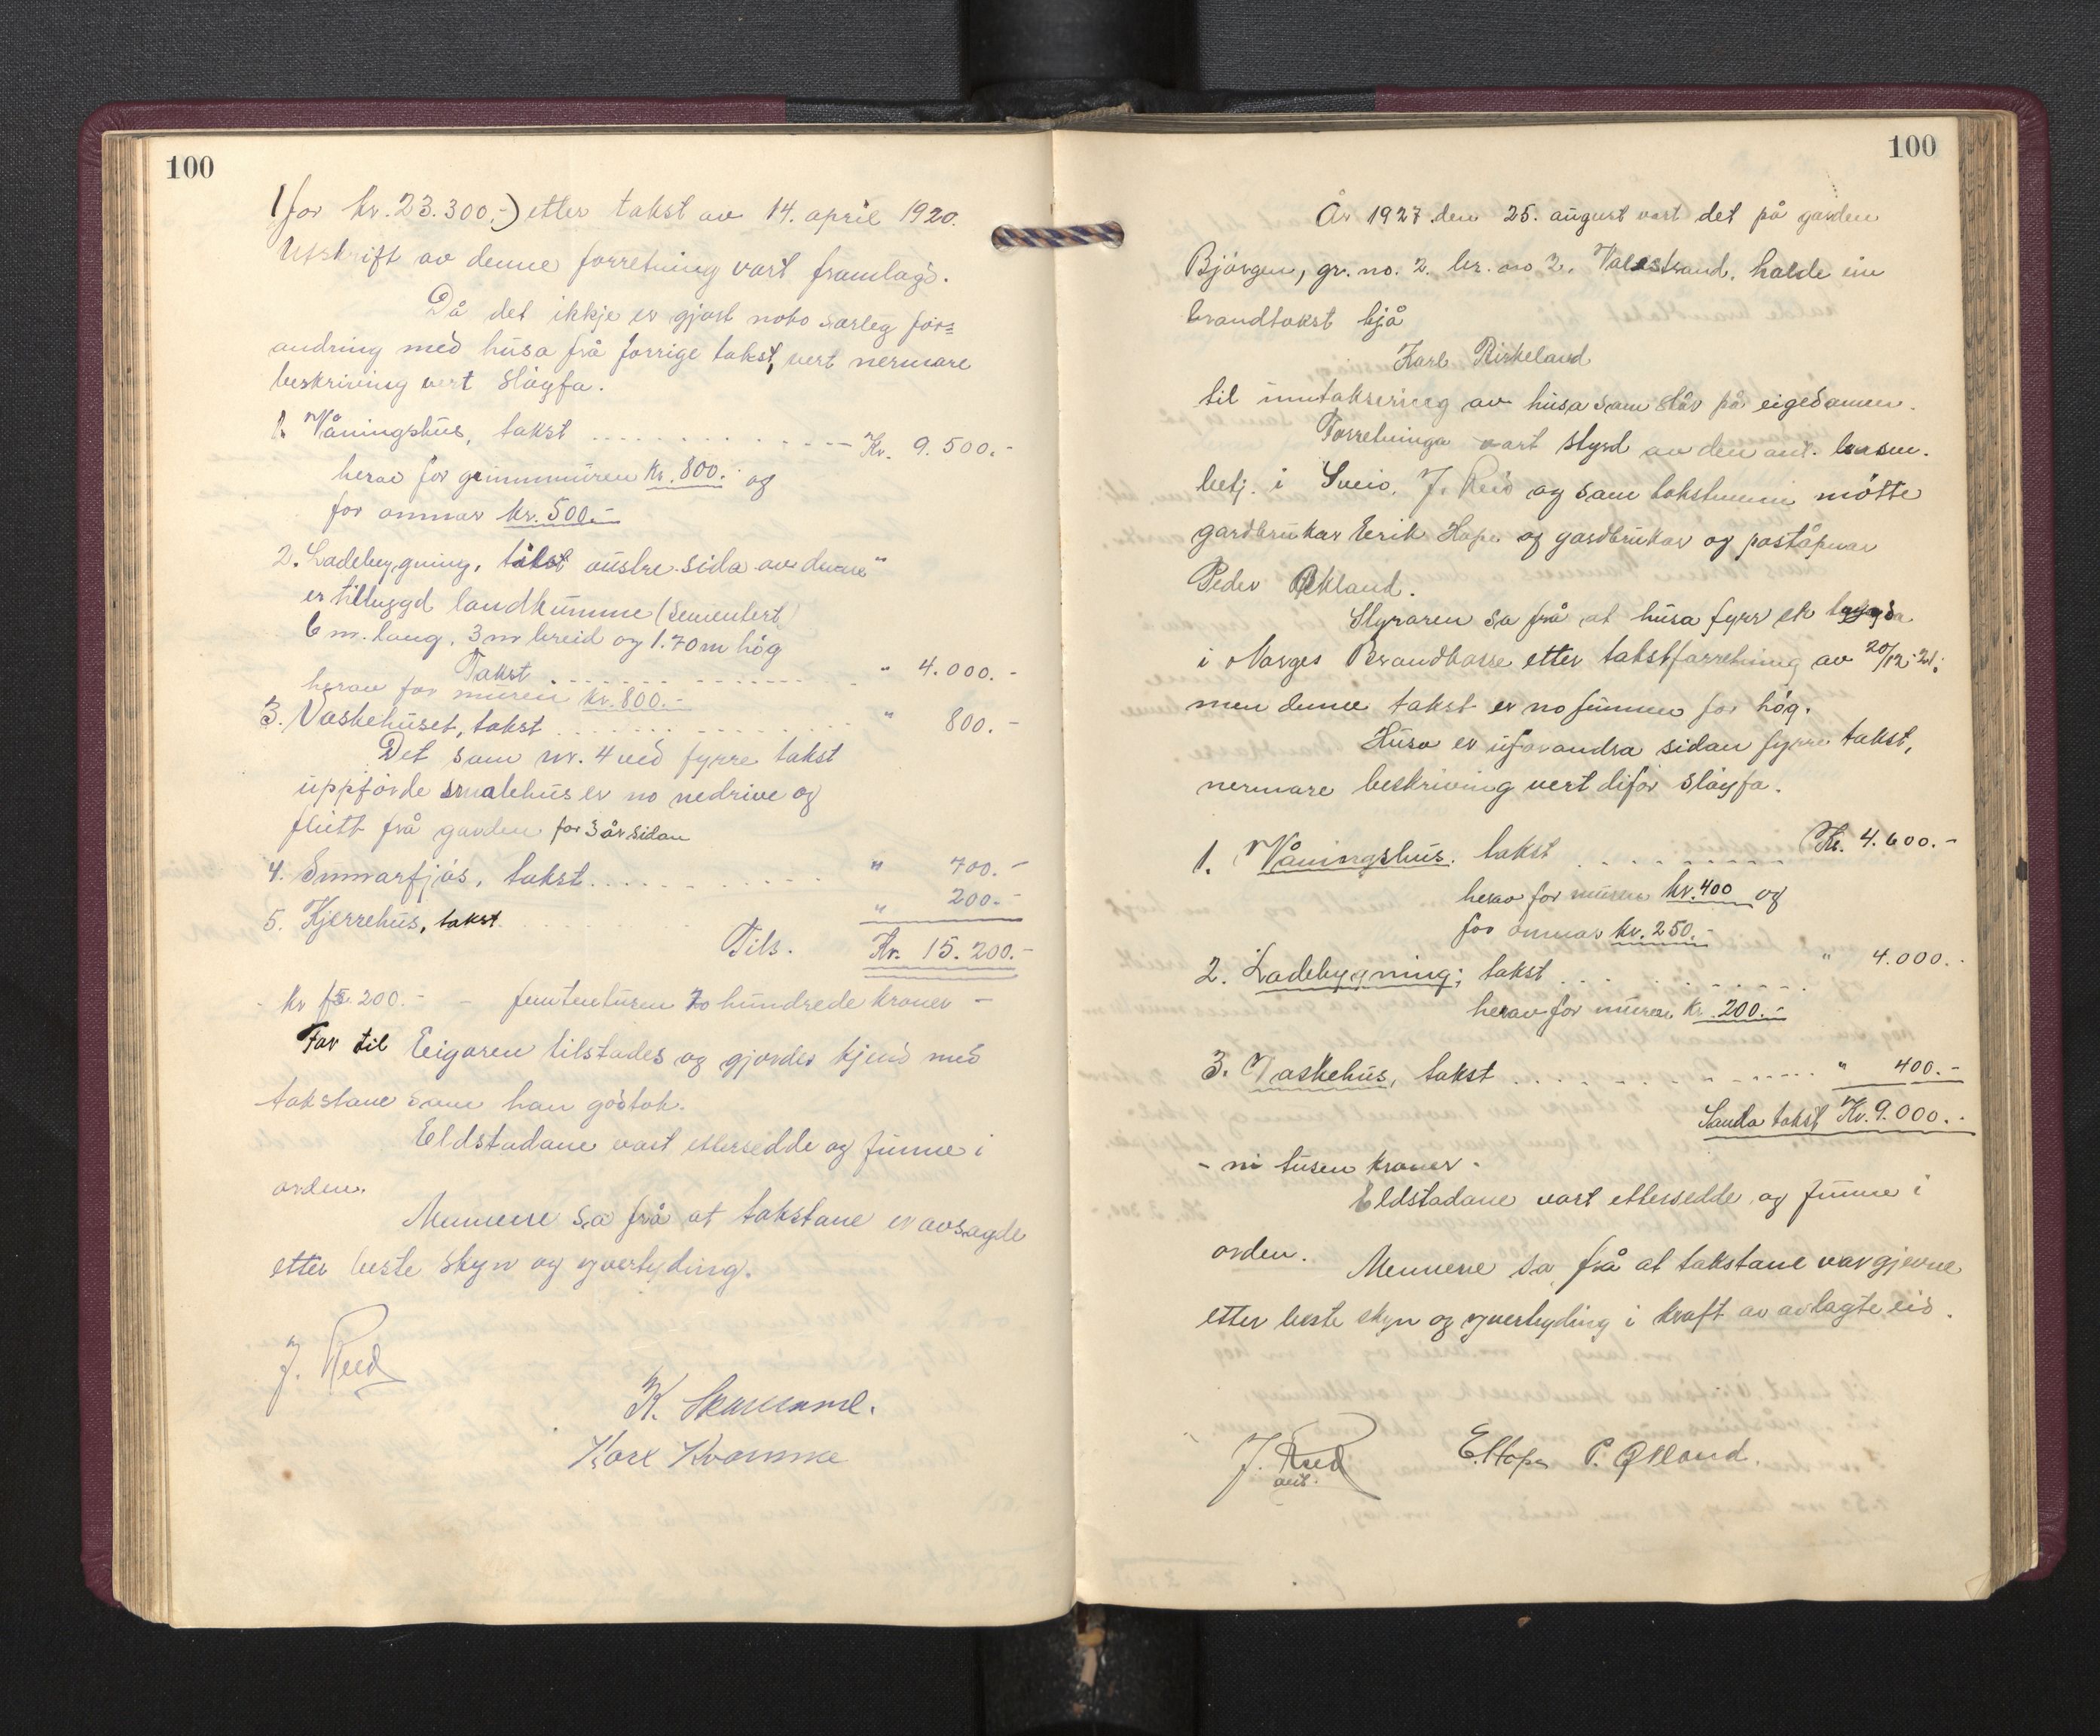 100
(for kr. 23.300,-) etter takst av 14. april 1920.
Utskrift av denne forretning vart framlagd.
Då det ikkje er gjort noko særleg for=
andring med husa frå forrige takst, vert nermare
beskriving vert sløyfa.
1. Våningshus, takst Kr. 9.500.-
herav for grunnmuren kr. 800.- og
for ommar kr. 500.-
2. Ladebygning, takst austre sida av denne "
er tilbygd landkumme (sementert)
6 m. lang, 3 m breid og 1.70 m høg
Takst " 4.000.-
herav for muren kr. 800.-
3. Vaskehuset, takst " 800.-
Det som nr. 4 ved fyrre takst
uppførde smalehus er no nedrive og
flutt frå garden for 3 år sidan
4. Sumarfjøs, takst " 700.-
5. Kjerrehus, takst " 200.-
Tils. Kr. 15.200.-
- kr 15.200.- - femtentusen to hundrede kroner -
Eigaren tilstades og gjordes kjend med
takstane som han godtok.
Eldstadane vart ettersedde og funne i
orden.
Mennene sa frå at takstane er avsagde
etter beste skyn og yvertyding.
J. Reed
Karl Kvamme
100
År 1927 den 25. august vart det på garden
Bjørgen, gr. no. 2. br. no 2, Valestrand, halde ein
brandtakst hjå
Karl Birkeland
til inntaksering av husa som står på eigedomen.
Forretninga vart styrd av den ant. lensm.
betj. i Sveio, J. Reed og som takstmenn møtte
gardbrukar Erik Hope og gardbrukar og poståpnar
Peder Økland.
Styraren sa frå at husa fyrr er trygda
i Norges Brandkasse etter takstforretning av 20/12-21;
men denne takst er no funnen for høg.
Husa er uforandra sidan fyrre takst,
nermare beskriving vert difor sløyfa.
1. Våningshus. takst Kr. 4.600.-
herav for muren kr. 400 og
for ommar kr. 250.-
2. Ladebygning; takst " 4.000.-
herav for muren kr. 200.-
3. Vaskehus, takst " 400.-
Samla takst Kr. 9.000.-
- ni tusen kroner -
Eldstadane vart ettersedde og funne i
orden.
Mennene sa frå at takstane var gjevne
etter beste skyn og yvertyding i kraft av avlagte eid.
J. Reed
ant.
E. Hope P. Økland.